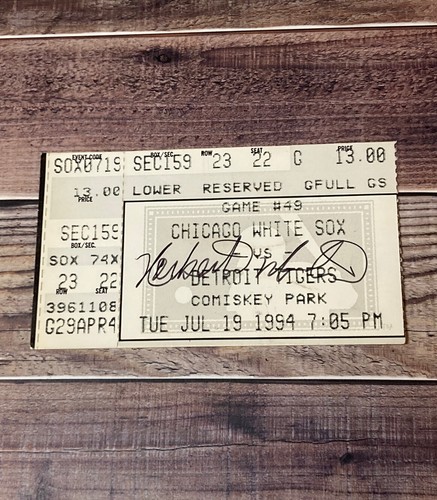 EVENT CODE BOX/SEC. ROW SEAT PRICE
SOX0719 SEC159 23 22 G 13.00
13.00 LOWER RESERVED GFULL GS
PRICE
GAME #49
SEC159 CHICAGO WHITE SOX
BOX/SEC.
VS
SOX 74X DETROIT TIGERS
23 22 COMISKEY PARK
ROW SEAT
3961108
G29APR4 TUE JUL 19 1994 7:05 PM